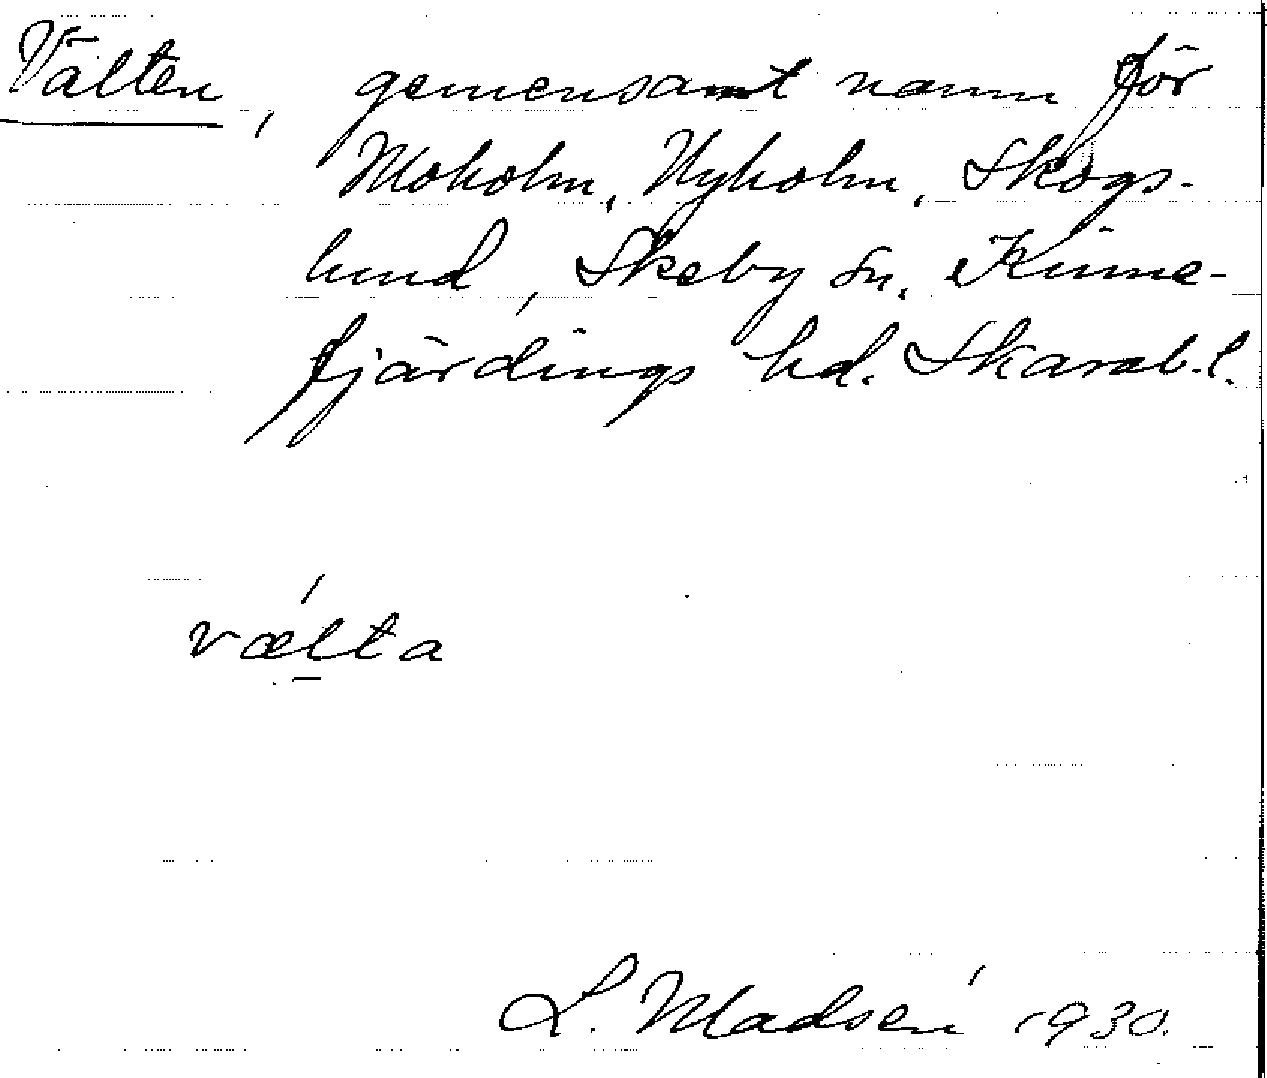 Välten, gemensamt namn för
Moholm, Nyholm, Skogs-
lund, Skeby sn, Kinne-
fjärdings hd. Skarab.l.
vælta
L. Madsén 1930.